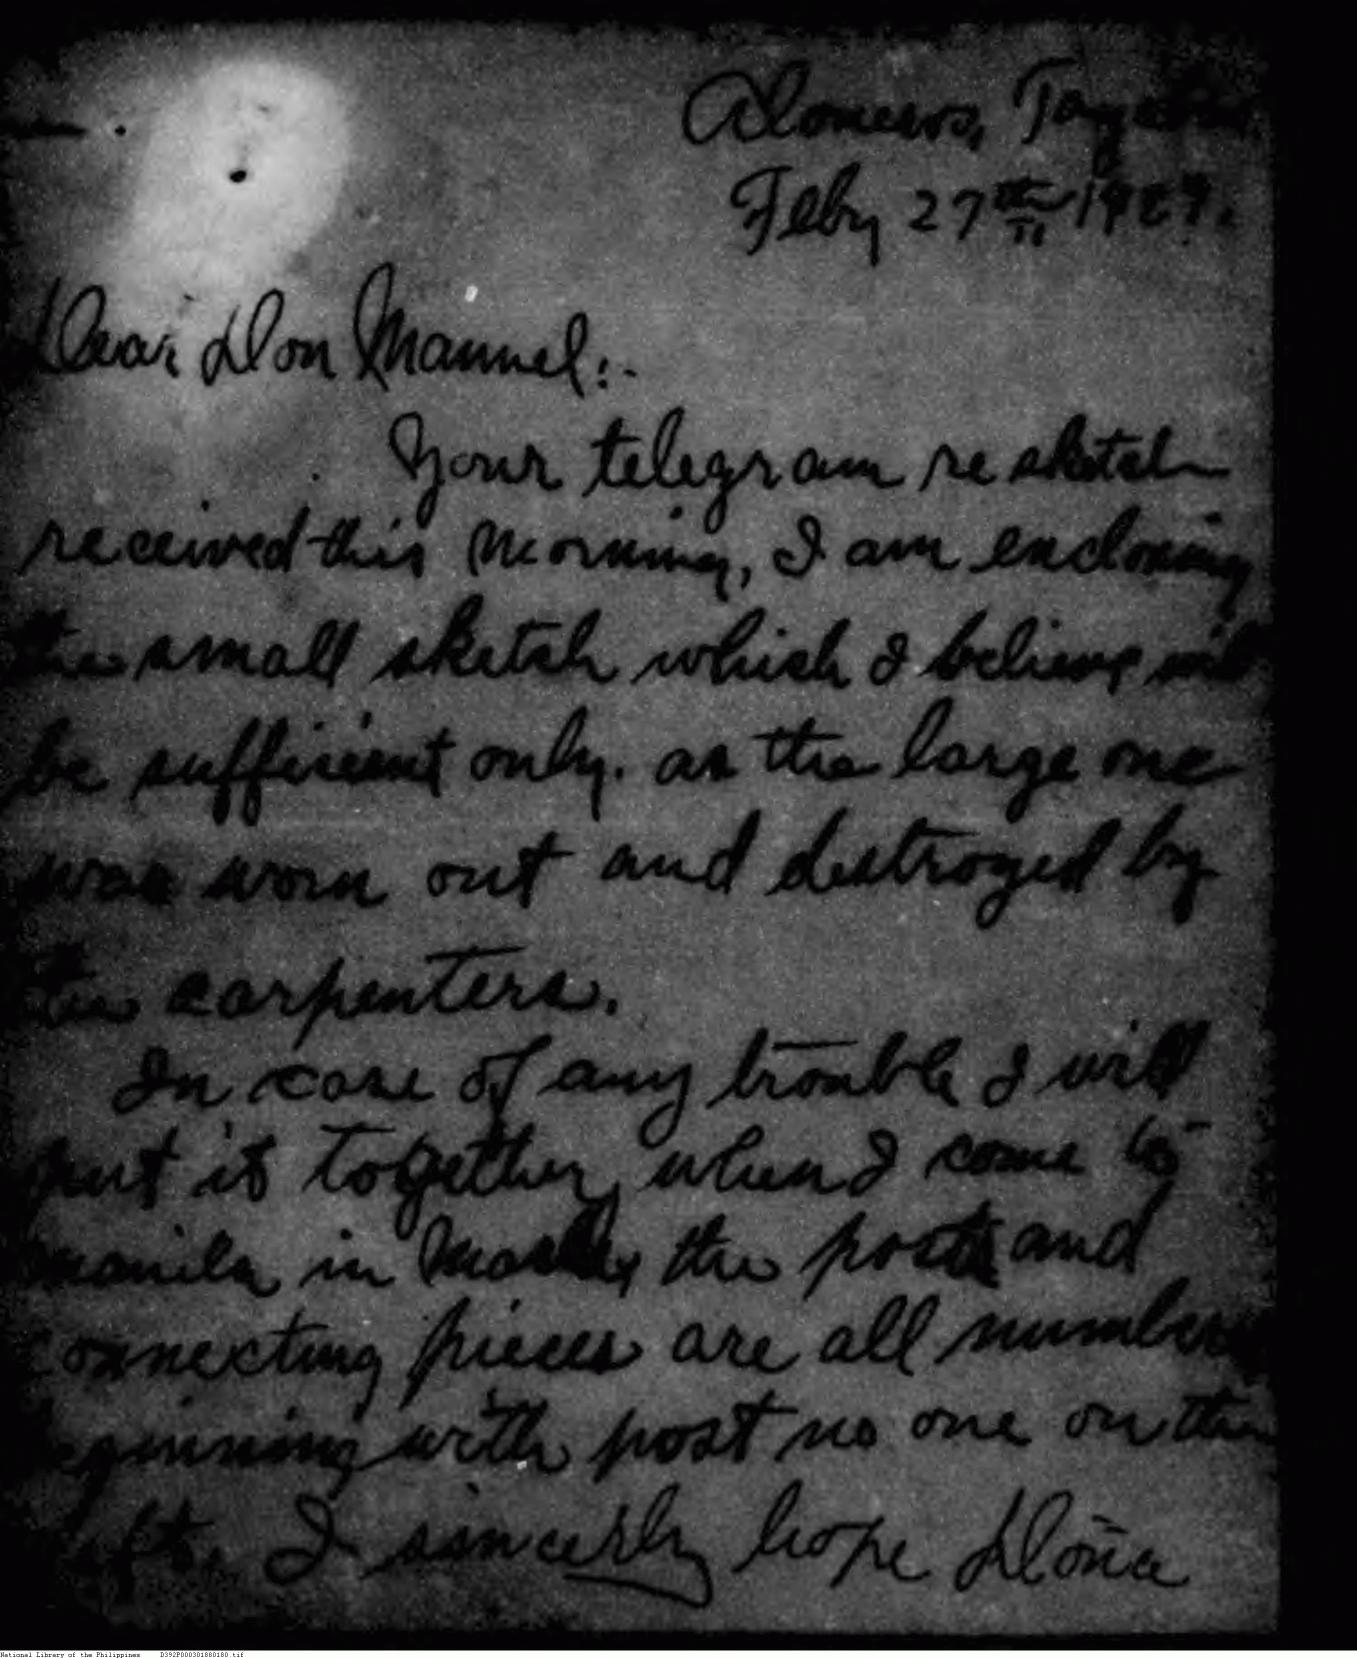 Feby 27th 1929.
Dear Don Manuel:-
Your telegram re sketch
received this morning, I am enclosing
the small sketch which I believe will
be sufficient only. as the large one
was worn out and destroyed by
the carpenters.
In case of any trouble I will
put it together when I come to
manila in the posts and
connecting pieces are all numbered
beginning with post no one on the
left. I sincerly hope Doña
National Library of the Philippines D392P000301880180.tif